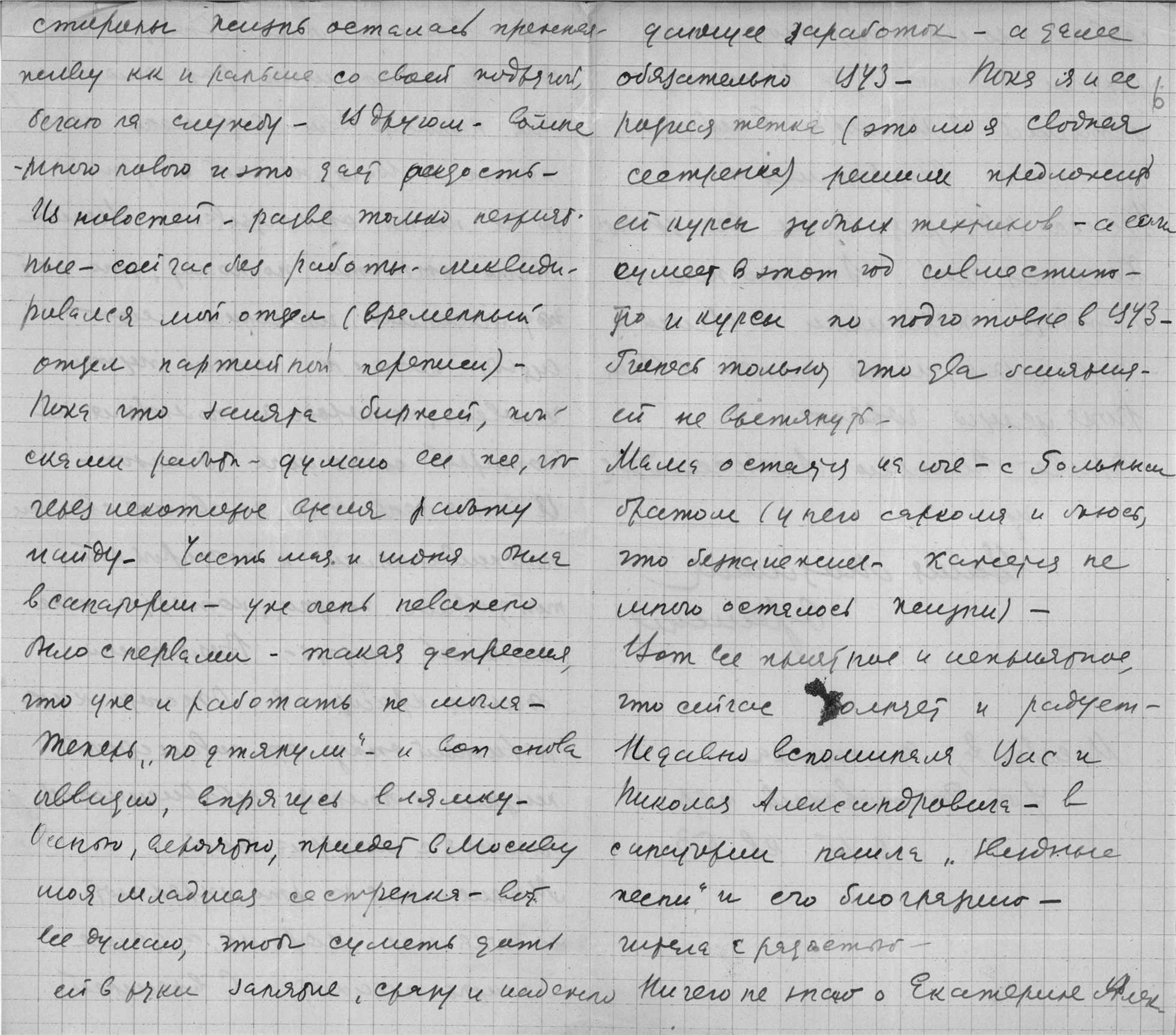 стороны жизнь осталась прежняя-
живу как и раньше со своей подругой,
бегаю на службу – В другом – во мне
-много нового и это дает радость –
Из новостей – разве только неприят-
ные – сейчас без работы. ликвиди-
ровался мой отдел (временный
отдел партийной переписи) –
Пока что занята биржей, пои-
сками работы – думаю все же, что
через некоторое время работу
найду – Часть мая и июня была
в санатории – уж очень неважно
было с нервами – такая депрессия,
что уже и работать не могла –
Теперь „подтянули" – и вот снова
очевидно, впрягусь в лямку –
Осенью, вероятно, приедет в Москву
моя младшая сестренка – вот
все думаю, чтобы суметь дать
ей в руки занятие, сразу и надежно
дающее заработок – а далее
обязательно ВУЗ – Пока я и ее
6
родная тетка (это моя сводная
сестренка) решили предложить
ей курсы зубных техников – а если
сумеет в этот год совместитель-
но и курсы по подготовке в ВУЗ –
Боюсь только, что два занятия –
ей не вытянуть –
Мама остается на юге – с больным
братом (у него саркома и боюсь,
что безнадежен – кажется не
много осталось жизни) –
Вот все приятное и неприятное,
что сейчас волнует и радует –
Недавно вспоминала Вас и
Николая Александровича – в
санатории нашла „Звездные
песни" и его биографию –
читала с радостью –
Ничего не знаю о Екатерине Алек-